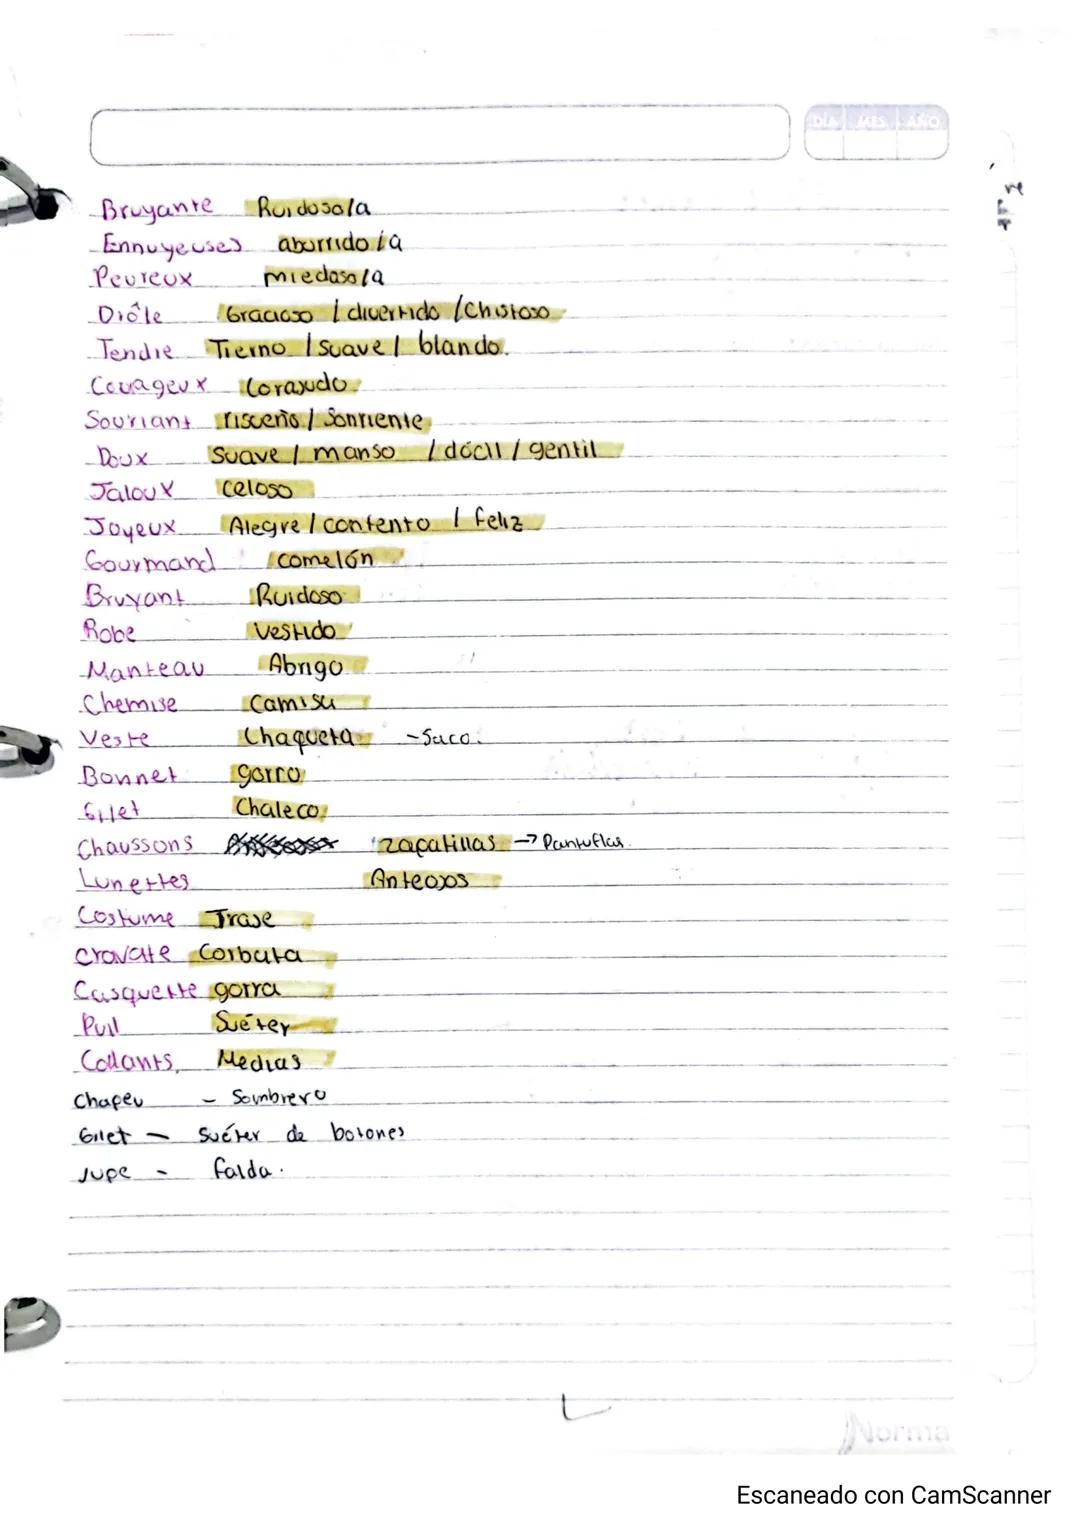 DÍA MES AÑO
Bruyante Ruidoso/a
Ennuyeuses aburrido/a
Peureux miedoso/a
Drôle Gracioso / divertido / Chistoso
Tendre Tierno / Suave / blando.
Couageux Corajudo
Souriant risceño / Sonriente
Doux Suave / manso / dócil / gentil
Jaloux celoso
Joyeux Alegre / contento / feliz
Gourmand comelón
Bruyant Ruidoso
Robe Vestido
Manteau Abrigo
Chemise Camisa
Veste Chaqueta - Saco.
Bonnet gorro
Gilet Chaleco
Chaussons zapatillas → Pantuflas.
Lunettes Anteojos
Costume Traje
Cravate Corbata
Casquette gorra
Pull Suéter
Collants Medias
Chapeu - Sombrero
Gilet - Suéter de botones
Jupe - falda.
Norma
Escaneado con CamScanner